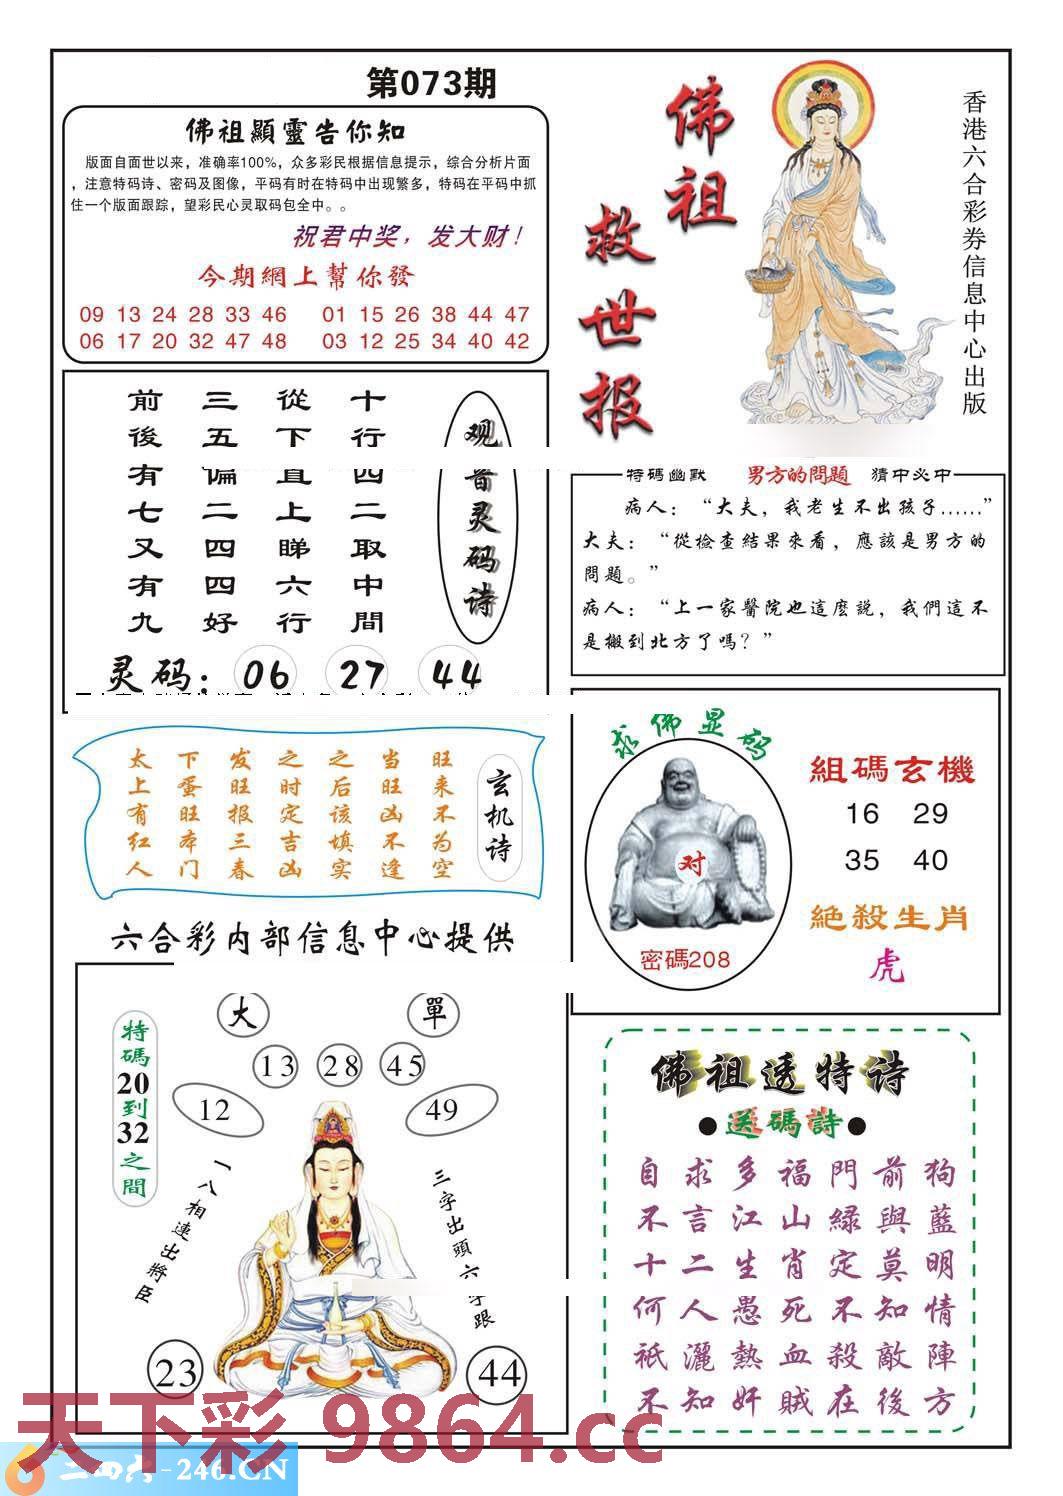 第073期
佛祖顯靈告你知
版面自面世以来，准确率100%，众多彩民根据信息提示，综合分析片面
，注意特码诗、密码及图像，平码有时在特码中出现繁多，特码在平码中抓
住一个版面跟踪，望彩民心灵取码包全中。。
祝君中奖，发大财！
今期網上幫你發
09 13 24 28 33 46 01 15 26 38 44 47
06 17 20 32 47 48 03 12 25 34 40 42
佛祖
救世报
香港六合彩券信息中心出版
观音灵码诗
十行四二取中間
從下直上睇六行
三五偏二四四好
前後有七又有九
灵码：06 27 44
特碼幽默 男方的問題 猜中必中
病人：“大夫，我老生不出孩子……”
大夫：“從檢查結果來看，應該是男方的
問題。”
病人：“上一家醫院也這麼説，我們這不
是搬到北方了嗎？”
玄机诗
旺来不为空
当旺凶不逢
之后该填实
之时定吉凶
发旺报三春
下蛋旺本门
太上有红人
求佛显码
对
密碼208
組碼玄機
16 29
35 40
絶殺生肖
虎
六合彩内部信息中心提供
大 單
13 28 45
12 49
特碼20到32之間
一八相連出將臣
三字出頭六字跟
23 44
佛祖透特诗
●送碼詩●
自求多福門前狗
不言江山緑與藍
十二生肖定莫明
何人愚死不知情
祇灑熱血殺敵陣
不知奸賊在後方
天下彩 9864.cc
二四六-246.CN